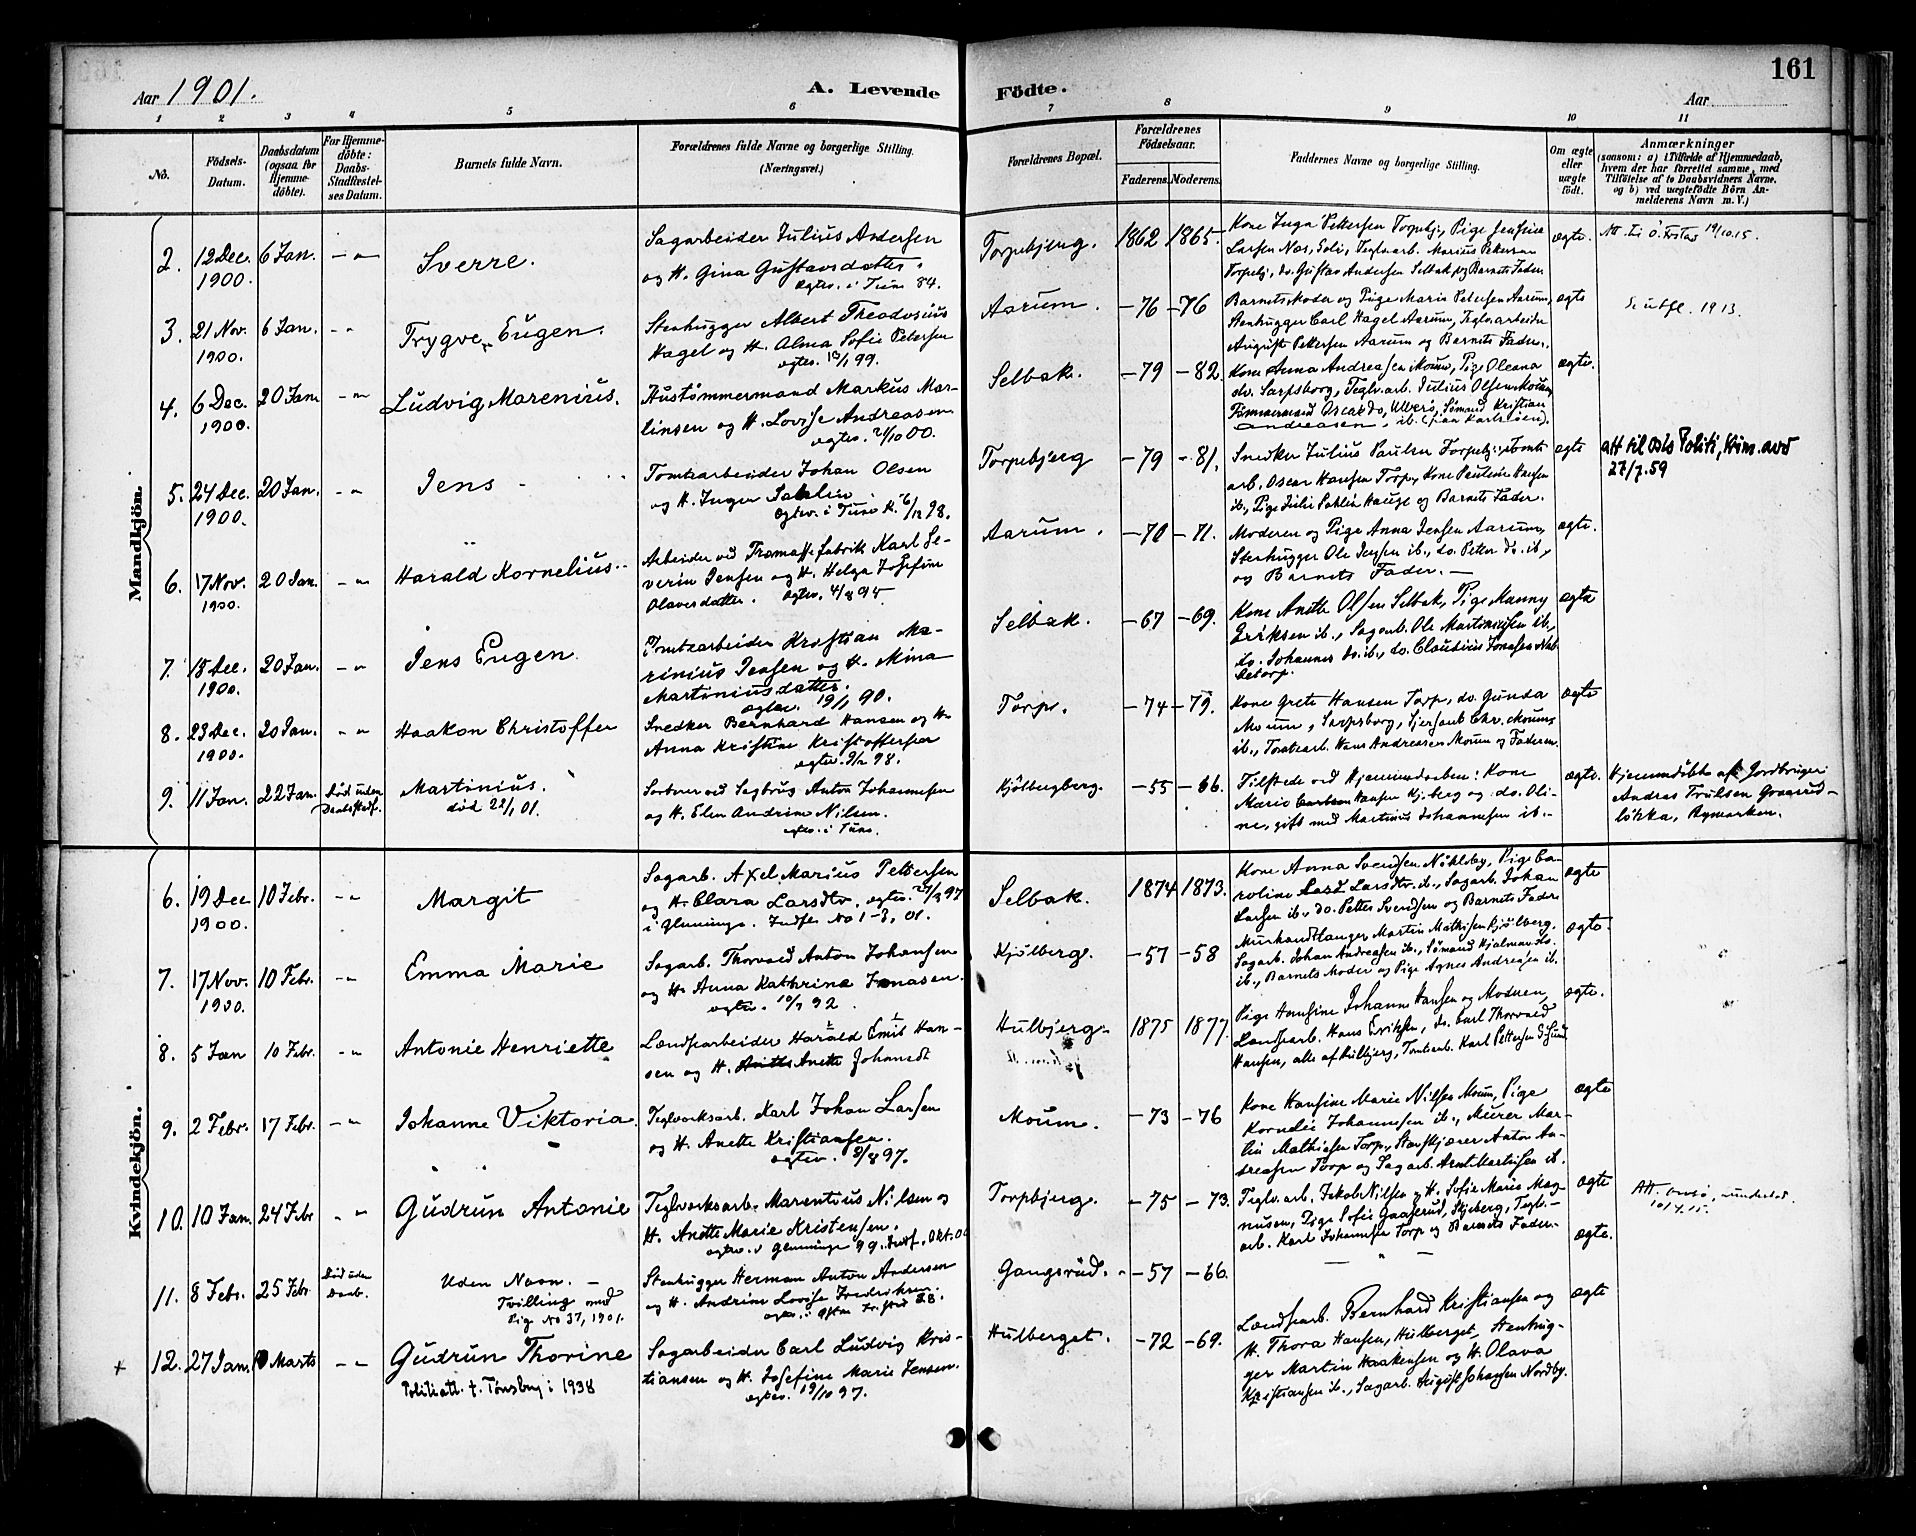 161
Aar 1901.
A. Levende
Födte.
Aar
1 2 3 4 5 6 7 8 9 10 11
No.
Födsels-
Datum.
Daabsdatum
(ogsaa for
Hjemme-
döbte).
For Hjemme-
döbte:
Daabs-
Stadfæstel-
ses Datum.
Barnets fulde Navn.
Forældrenes fulde Navne og borgerlige Stilling.
(Næringsvei.)
Forældrenes Bopæl.
Forældrenes
Födselsaar.
Faderens. Moderens.
Faddernes Navne og borgerlige Stilling.
Om ægte
eller
uægte
födt.
Anmærkninger
(saasom: a) i Tilfælde af Hjemmedaab,
hvem der har forrettet samme, med
Tilföielse af to Daabsvidners Navne,
og b) ved uægtefödte Börn An-
melderens Navn m. V.)
Mandkjön.
2. 12 Dec. 6 Jan. – „ –
1900.
Sverre.
Sagarbeider Julius Andersen
og H. Gina Gustavsdatter.
Ægtev. i Tune 84.
Torpebjerg. 1862 1865.
Kone Inga Pettersen Torpebj., Pige
Larsen Næs, Soli, Teglv.arb. Marius Pettersen
Torpebj., do. Gustav Andersen Selbak og Barnets Fader
ægte.
19/10 15.
3. 21 Nov. 6 Jan. – „
1900.
Trygve Eugen.
Stenhugger Albert Theodosius
Hagel og H. Alma Sofie Petersen
ægtev. 99.
Aarum. – 76 – 76
Barnets Moder og Pige Marie Petersen Aarum,
Stenhugger Carl Hagel Aarum, Teglv.arbeider
August Pettersen Aarum og Barnets Fader.
ægte
utfl. 1913.
4. 6 Dec. 20 Jan. – „ –
1900.
Ludvig Marenius.
Hustømmermand Markus Mar-
linsen og H. Lovise Andreasen
ægtev. 00.
Selbak. – 79 – 82.
Kone Anna Andreasen Moum, Pige Oleana
do. Sarpsborg, Teglv.arb. Julius Olsen Moum,
Tømmermand Oscar do., Sømand Kristian
Andreasen ib.
ægte.
5. 24 Dec. 20 Jan. – „
1900.
Jens
Tomtearbeider Johan Olsen
og H. Inger Sahlin.
Ægtev. i Tune 6/12 98.
Torpebjerg – 79 – 81.
Snedker Julius Paulsen Torpebj., Tomte-
arb. Oscar Hansen Torp, Kone Pauline Hansen
ib., Pige Julie Sahlin Hauge og Barnets Fader.
ægte
att til Oslo Politi, Krim. avd
27/7.59
6. 17 Nov. 20 Jan. – „
1900.
Harald Kornelius.
Arbeider ved Træmasse fabrik Karl Se-
verin Jensen og H. Helga Josefine
Olavesdatter. Ægtev. 4/8 95
Aarum. – 70 – 71.
Moderen og Pige Anna Jensen Aarum,
Stenhugger Ole Jensen ib., do. Peter do. ib.,
og Barnets Fader. –
ægte.
7. 15 Dec. 20 Jan. – „
1900.
Jens Eugen
Tomtearbeider Kristian Ma-
rinius Jensen og H. Mina
Martiniusdatter.
ægtev. 19/1 90.
Selbak. – 67 – 69.
Kone Anette Olsen Selbak, Pige Nanny
Eriksen ib., Sagarb. Ole Martinsen ib.,
do. Johannes do. ib., do. Claudius Jonasen
ægte
8. 23 Dec. 20 Jan. „ „
1900.
Haakon Christoffer
Snedker Bernhard Hansen og H.
Anna Kristine Kristoffersen
ægtev. 98.
Torp. – 74 – 79.
Kone Grete Hansen Torp, do. Gunda
Moum, Sarpsborg, Chr. Moum
ib., Tomtearb. Hans Andreasen Moum og Faderen.
ægte
9. 11 Jan. 22 Jan. Död uden
Daabsstadf.
Martinius.
död 22/1 01.
Sorterer ved Sagbrug Anton Johannesen
og H. Elen Andrine Nilsen.
ægtev. i Tune.
Kjölbergberg. – 55 – 66.
Tilstede ved Hjemmedaaben: Kone
Marie Hansen Kj.berg og do. Oli-
ne, gift med Martinus Johannesen ib. –
ægte.
Hjemmedöbt af Jordbruger
Andras Trulsen
løkka, Rymarken.
Kvindekjön.
6. 19 Dec 10 Febr. – „
1900.
Margit
Sagarb. Axel Marius Pettersen
og H. Clara Larsdtr. ægtev. 97
i Glemminge. No 1-3, 01.
Selbak. 1874 1873.
Kone Anna Svendsen Nökleby, Pige Ca-
roline Larsdtr. ib., Sagarb. Johan
Larsen ib., do. Petter Svendsen og Barnets Fader
ægte
7. 17 Nov. 10 Febr. – „
1900.
Emma Marie
Sagarb. Thorvald Anton Johansen
og H. Anna Kathrine Jonasen.
ægtev. 92
Kjölberg. – 57 – 58
Murhandtlanger Martin Mathisen Kjölberg,
Sagarb. Johan Andreasen ib., Sømand Hjalmar do.
ib., Barnets Moder og Pige Agnes Andreasen ib.
ægte.
8. 5 Jan 10 Febr. – „
Antonie Henriette
Landsarbeider Harald Emil Han-
sen og H. Anette Johansdt
Hulbjerg. 1875 1877.
Pige Hansine Johanne Hansen og Moderen,
Landsarb. Hans Eriksen, do. Carl Thorvald
Hansen, alle af Hulbjerg, Tomtearb. Karl Pettersen
ægte.
9. 2 Febr. 17 Febr. – „
Johanne Viktoria.
Teglverksarb. Karl Johan Larsen
og H. Anette Kristiansen.
ægtev. 8/8 97.
Moum. – 73 – 76
Kone Hansine Marie Nilsen Moum, Pige
Kornelie Johannesen ib., Murer Mar-
tin Mathisen Torp, Anton An-
dreasen Torp og Sagarb. Arnt Martinsen ib.
ægte
10. 10 Jan. 24 Febr „ „
Gudrun Antonie
Teglverksarb. Marentius Nilsen og
H. Anette Marie Kristensen.
ægtev. i Glemminge 99. Okt. 00
Torpbjerg. – 75 – 73.
Teglv.arb. Jakob Nilsen og H. Sofie Marie Mag-
nusen, Pige Sofie Gaaserud, Skjeberg, Teglv.-
arb. Karl Johannesen Torp og Barnets Fader.
ægte
Att.
10/4.15.
11. 8 Febr. 25 Febr. Död uden
Daab.
Uden Navn. –
Tvilling med
Pige No 37, 1901.
Stenhugger Herman Anton Andersen
og H. Andrine Lovise Fredriksen
ægtev. 88.
Gangsrud. – 57 – 66.
– „ –
ægte.
+ 12. 27 Jan. Marts – „
Gudrun Thorine
Politiatt. t. Tønsberg i 1938
Sagarbeider Carl Ludvig Kris-
tiansen og H. Josefine Marie Jensen.
ægtev. 19/10 97.
Hulberget. – 72 – 69.
Landsarb. Bernhard Kristiansen og
H. Thora Hansen, Hulberget, Stenhug-
ger Martin Haakensen og H. Olava
Kristiansen ib., Sagarb. August Johansen Nordby.
ægte